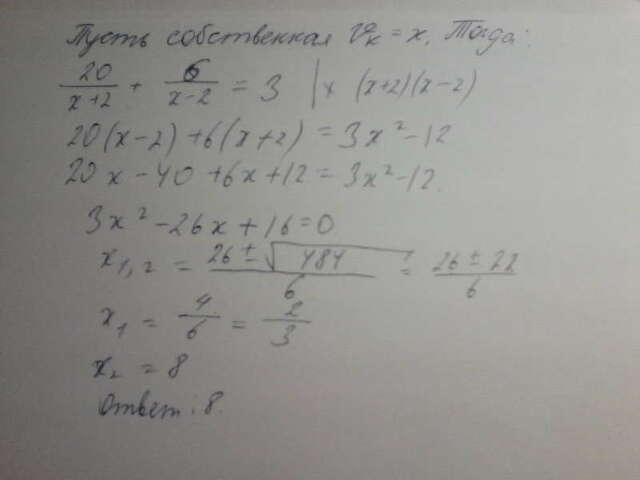 Пусть собственная Vк = x. Тогда:
20/(x+2) + 6/(x-2) = 3 | × (x+2)(x-2)
20(x-2)+6(x+2)=3x²-12
20x-40+6x+12=3x²-12.
3x²-26x+16=0
x₁,₂ = (26±√484)/6 = (26±22)/6
x₁ = 4/6 = 2/3
x₂ = 8
Ответ: 8.